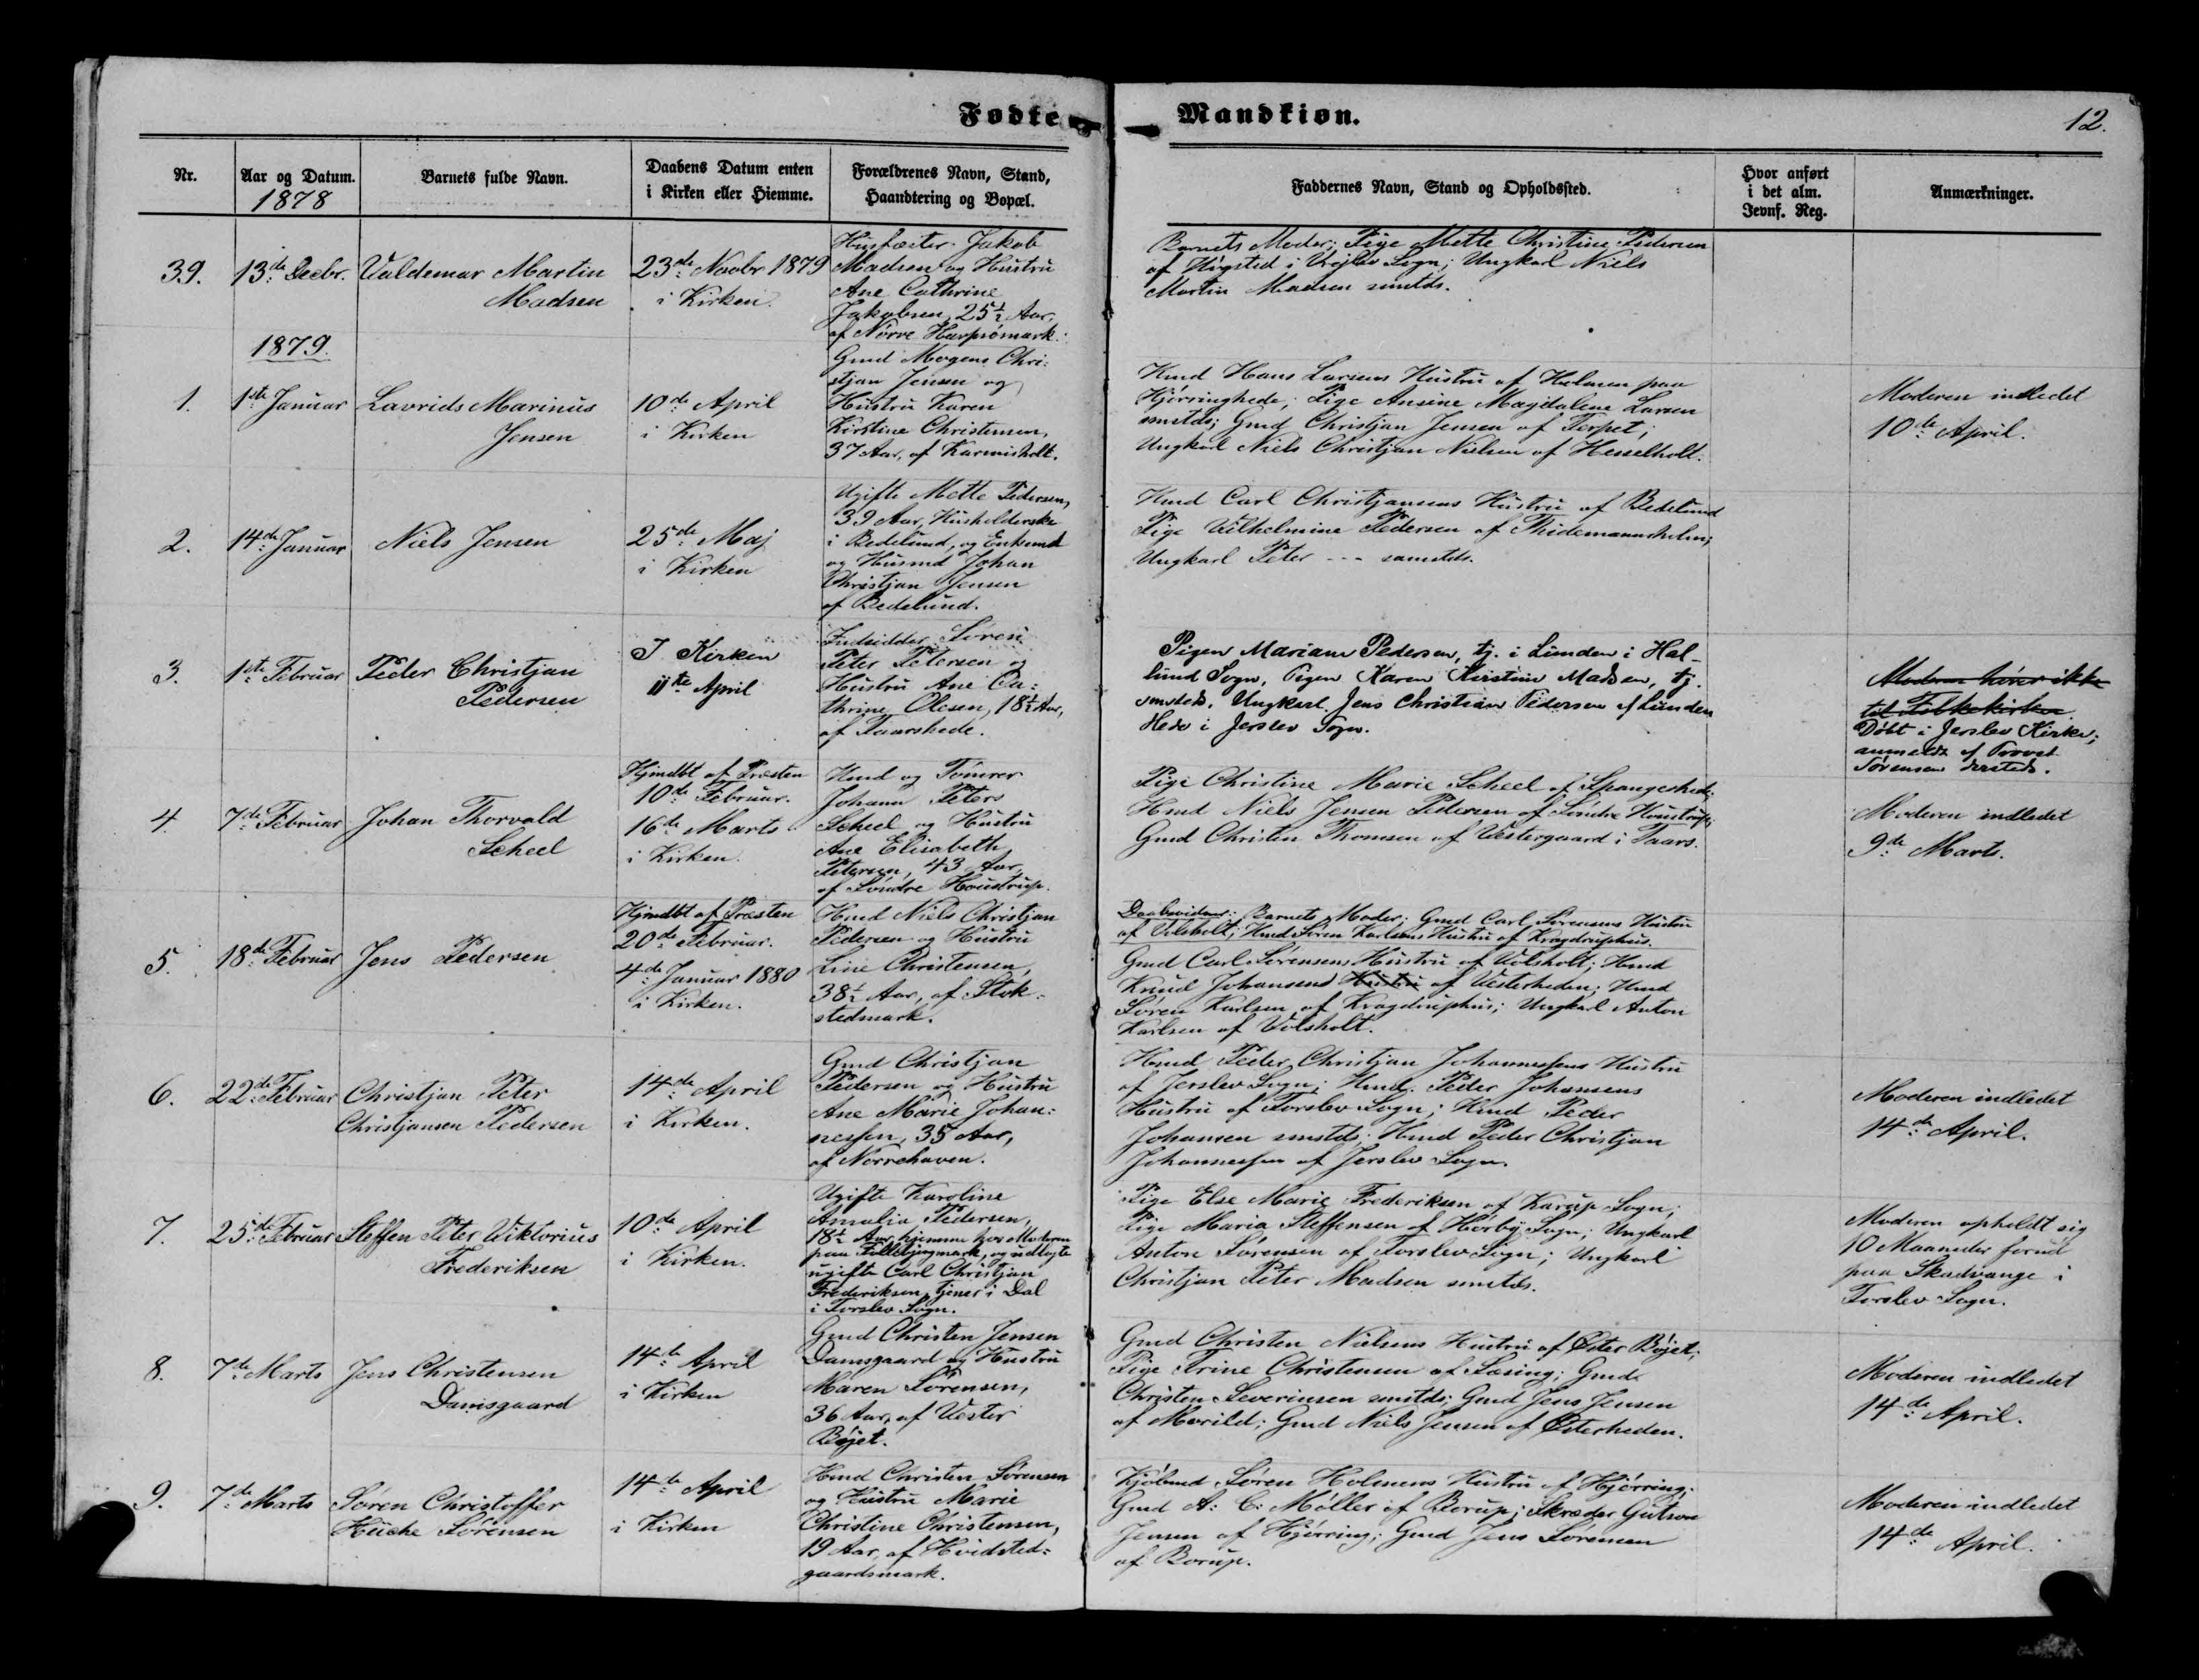 Fødte
Mandkiøn.
12.
Nr.
Aar og Datum.
1878
Barnets fulde Navn.
Daabens Datum enten
i Kirken eller Hjemme.
Forældrenes Navn, Stand,
Haandtering og Bopæl.
Faddernes Navn, Stand og Opholdssted.
Hvor anført
i det alm.
Jevnf. Reg.
Anmærkninger.
39.
13de Decbr.
Valdemar Martin
Madsen
23de Novbr 1879
i Kirken.
Husfæster Jakob
Madsen og Hustru
Ane Cathrine
Jakobsen, 25½ Aar,
af Nørre
Barnets Moder; Pige Mette Christine Pedersen
af i Sogn; Ungkarl Niels
Martin Madsen smstds.
1879.
1.
1ste Januar
Lavrids Marinus
Jensen
10de April
i Kirken
Gmd Mogens Chri-
stjan Jensen og
Hustru Karen
Kirstine Christensen,
37 Aar, af Karmisholt.
Hmd Hans Larsens Hustru af Holmen paa
Hjørringhede; Pige Ansine Magdalene Larsen
smstds; Gmd Christjan Jensen af Terpet;
Ungkarl Niels Christjan Nielsen af Hesselholt.
Moderen indledet
10de April.
2.
14de Januar
Niels Jensen
25de Maj
i Kirken
Ugifte Mette Pedersen,
39 Aar, Husholderske
i Bedelund, og Enkemd
og Husmd Johan
Christjan Jensen
af Bedelund.
Hmd Carl Christjansens Hustru af Bedelund
Pige Vilhelmine Pedersen af Thidemannsholm;
Ungkarl Peter --- samstds.
3.
1ste Februar
Peder Christjan
Pedersen
I Kirken
11te April
Indsidder Søren
Peter Petersen og
Hustru Ane Ca-
thrine Olesen, 18½ Aar,
af Taarshede.
Pigen Mariane Pedersen, tj. i Lunden i Hal-
lund Sogn, Pigen Karen Kirstine Madsen, tj.
smstds. Ungkarl Jens Christian Pedersen af Lunden
Hede i Jerslev Sogn.
Moderen hører ikke
til Folkekirken
Døbt i Jerslev Kirke;
anmeldt af Provst
Sørensen dersteds.
4.
7de Februar
Johan Thorvald
Scheel
Hjmdbt af Præsten
10de Februar.
16de Marts
i Kirken.
Hmd og Tømrer
Johann Peter
Scheel og Hustru
Ane Elisabeth
Petersen, 43 Aar,
af Søndre Houstrup.
Pige Christine Marie Scheel af
Hmd Niels Jensen Pedersen af Søndre Houstrup;
Gmd Christen Thomsen af Vestergaard i Taars.
Moderen indledet
9de Marts.
5.
18de Februar
Jens Pedersen
Hjmdbt af Præsten
20de Februar.
4de Januar 1880
i Kirken.
Hmd Niels Christjan
Pedersen og Hustru
Line Christensen,
38½ Aar, af Stok-
stedmark.
Daabsvidner: Barnets Moder; Gmd Carl Sørensens Hustru
af Volsholt; Hmd Søren Karlsens Hustru af Kragdruphus.
Gmd Carl Sørensens Hustru af Volsholt; Hmd
Knud Johansens Hustru af Vesterheden; Hmd
Søren Karlsen af Kragdruphus; Ungkarl Anton
Karlsen af Volsholt.
6.
22de Februar
Christjan Peter
Christjansen Pedersen
14de April
i Kirken.
Gmd Christjan
Pedersen og Hustru
Ane Marie Johan-
nessen, 35 Aar,
af Nørrehaven.
Hmd Peder Christjan Johannessens Hustru
af Jerslev Sogn; Hmd. Peder Johansens
Hustru af Torslev Sogn; Hmd Peder
Johansen smstds; Hmd Peder Christjan
Johannessen af Jerslev Sogn.
Moderen indledet
14de April.
7.
25de Februar
Steffen Peter Viktorius
Frederiksen
10de April
i Kirken.
Ugifte Karoline
Amalia Pedersen,
18½ Aar, hjemme hos Moderen
paa og udlagte
ugifte Carl Christjan
Frederiksen, tjener i Dal
i Torslev Sogn.
Pige Else Marie Frederiksen af Karup Sogn;
Pige Maria Steffensen af Hørby Sogn; Ungkarl
Anton Sørensen af Torslev Sogn; Ungkarl
Christjan Peter Madsen smstds.
Moderen opholdt sig
10 Maaneder forud
paa Skadvange i
Torslev Sogn.
8.
7de Marts
Jens Christensen
Damsgaard
14de April
i Kirken
Gmd Christen Jensen
Damsgaard og Hustru
Maren Sørensen,
36 Aar, af Vester
Bøjet.
Gmd Christen Nielsens Hustru af Øster Bøjet;
Pige Trine Christensen af Sæsing; Gmd
Christen Severinsen smstds; Gmd Jens Jensen
af Morild; Gmd Niels Jensen af Østerheden.
Moderen indledet
14de April.
9.
7de Marts
Søren Christoffer
Sørensen
14de April
i Kirken
Hmd Christen Sørensen
og Hustru Marie
Christine Christensen,
19 Aar, af Hvidsted-
gaardsmark.
Kjøbmd Søren Holmens Hustru af Hjørring;
Gmd A: C: Møller af Borup; Skræder
Jensen af Hjørring; Gmd Jens Sørensen
af Borup.
Moderen indledet
14de April.